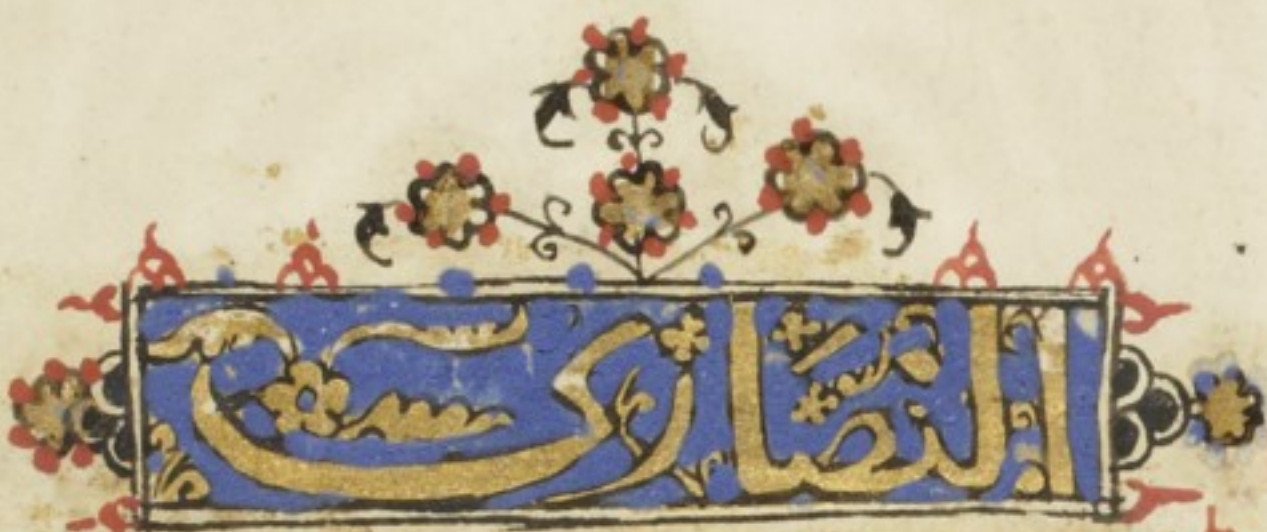 النصارى